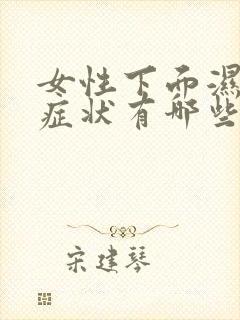 女性下面湿
症状有哪些
宋建琴